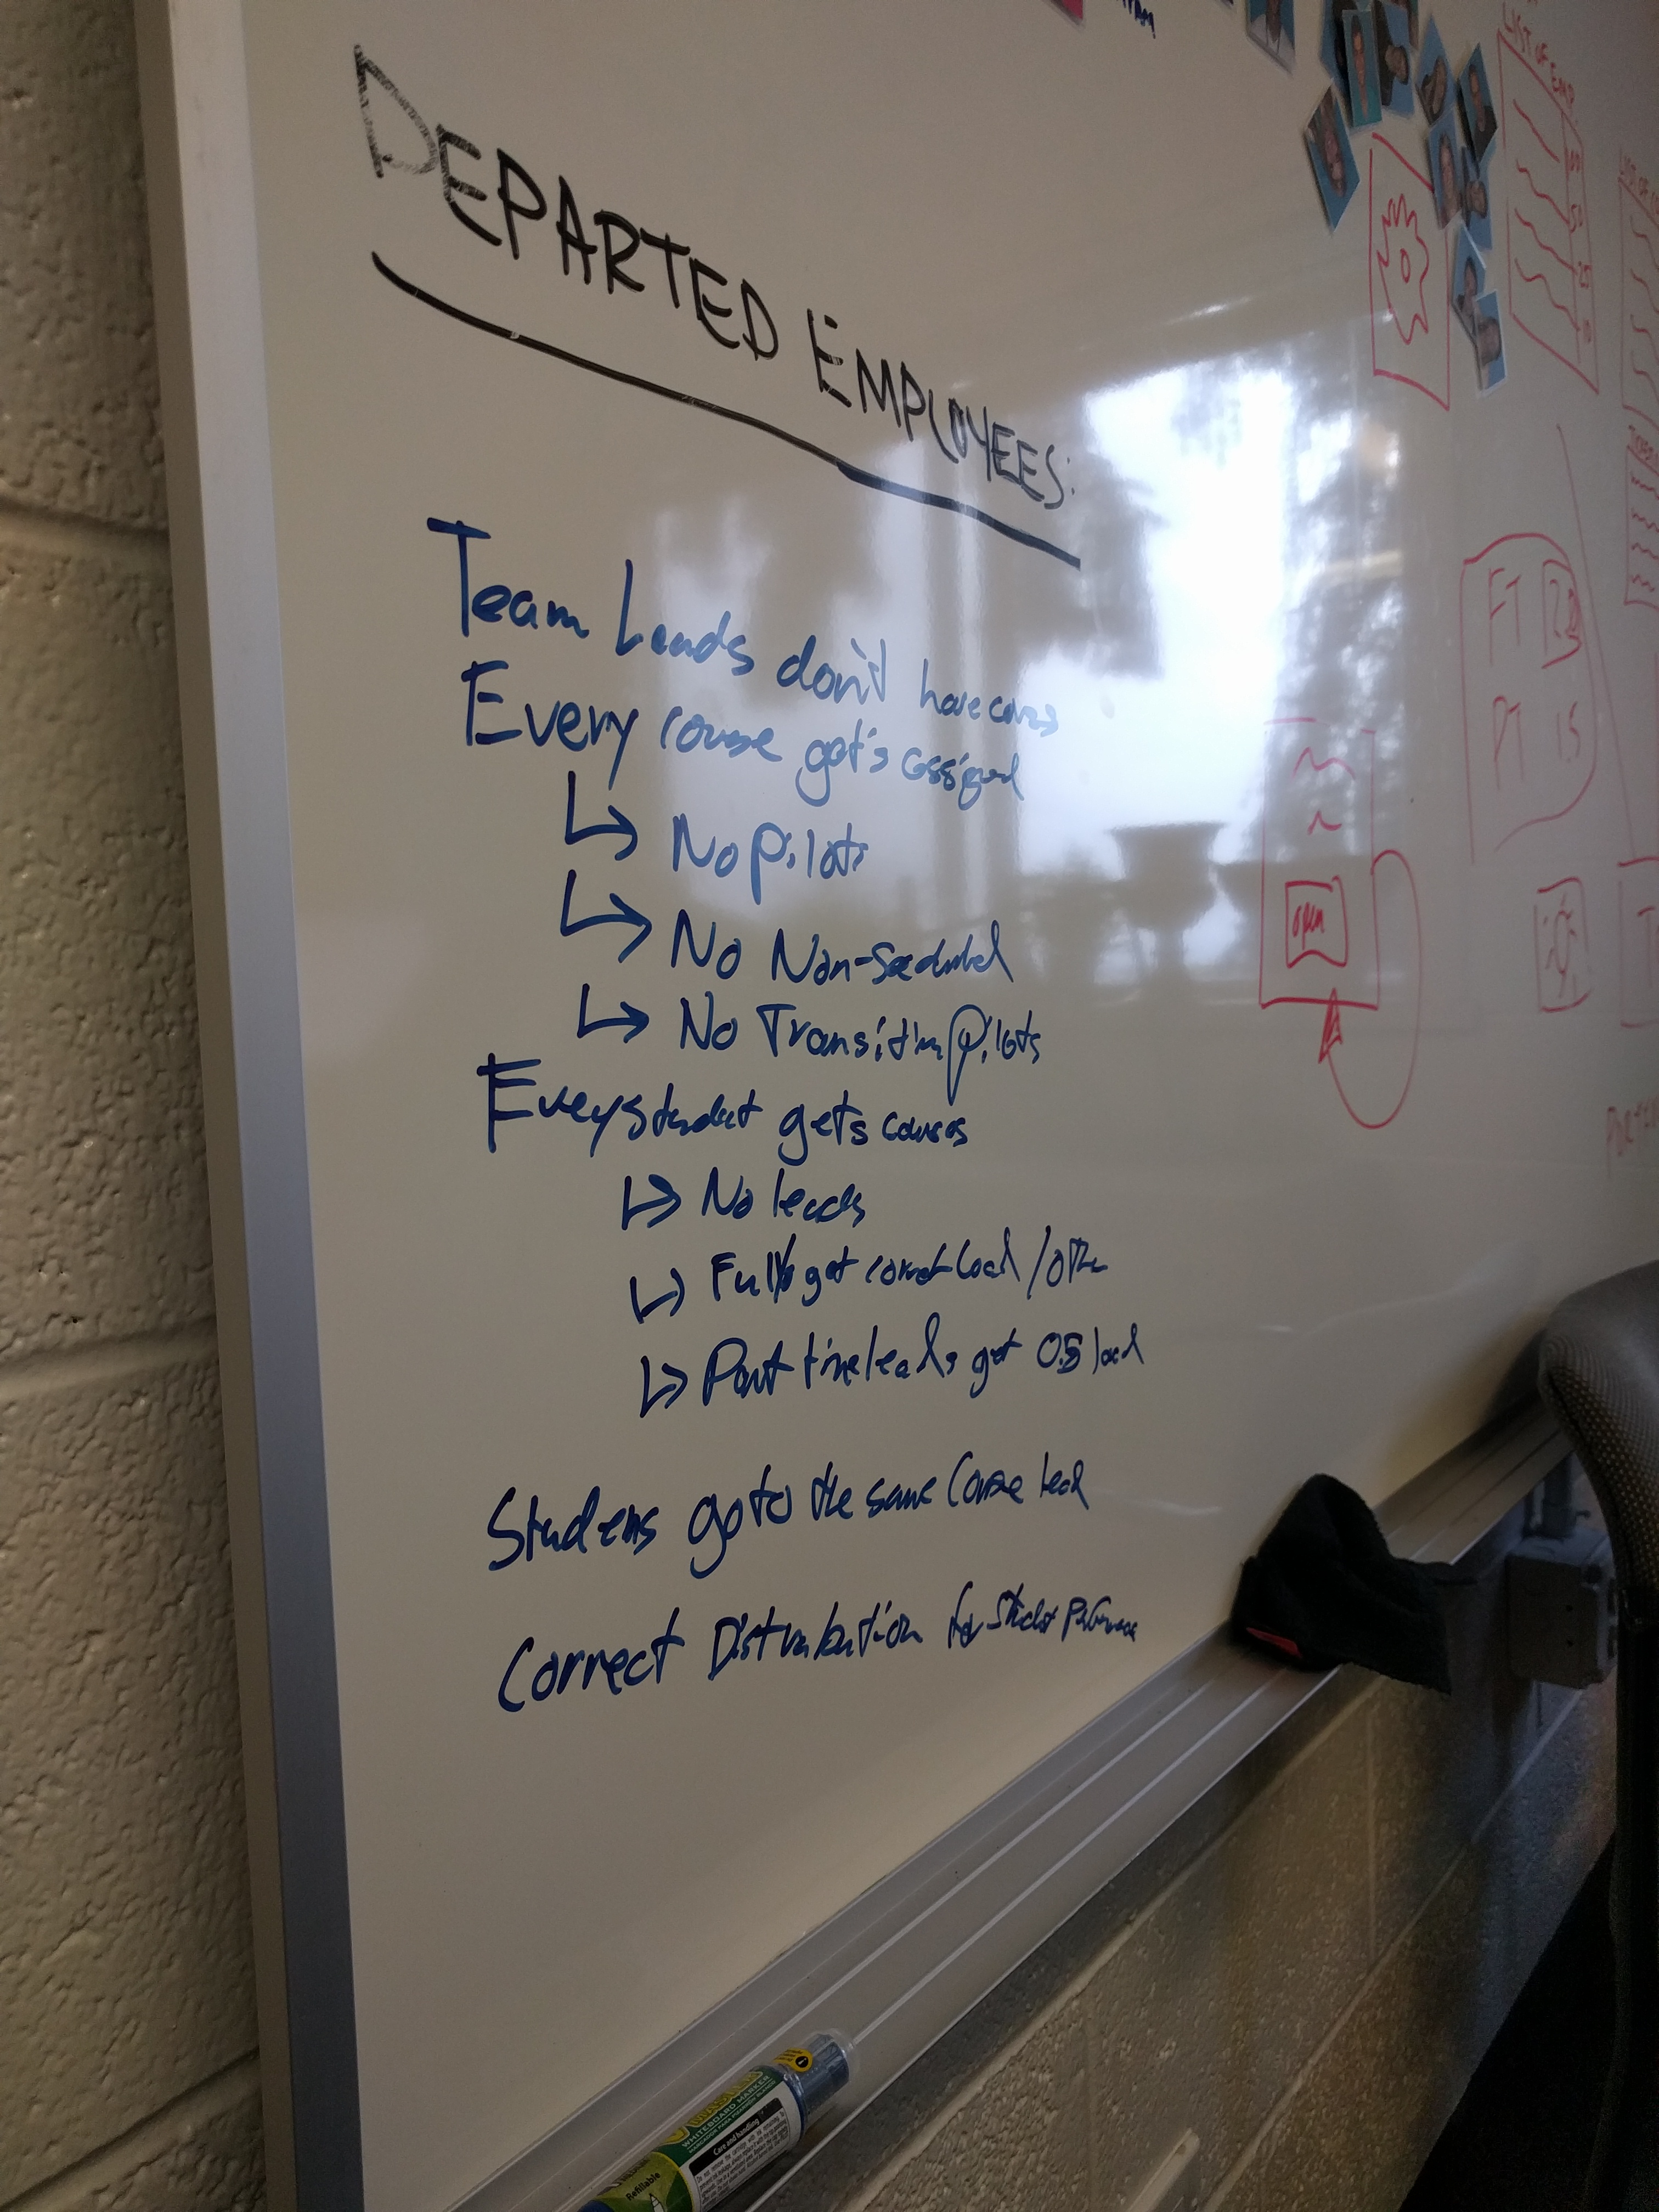 DEPARTED EMPLOYEES:
Team Leads don't have courses
Every course get's assigned
↳ No Pilots
↳ No Non-Scheduled
↳ No Transition Pilots
Every student gets courses
↳ No leads
↳ Full get correct load / other
↳ Part time leads get 0.5 load
Students go to the same Course lead
Correct Distribution for Student Performance
LIST OF EMP.
LIST OF
100
50
25
10
FT 25
PT 15
open
WHITEBOARD MARKER
Care and handling
Refillable